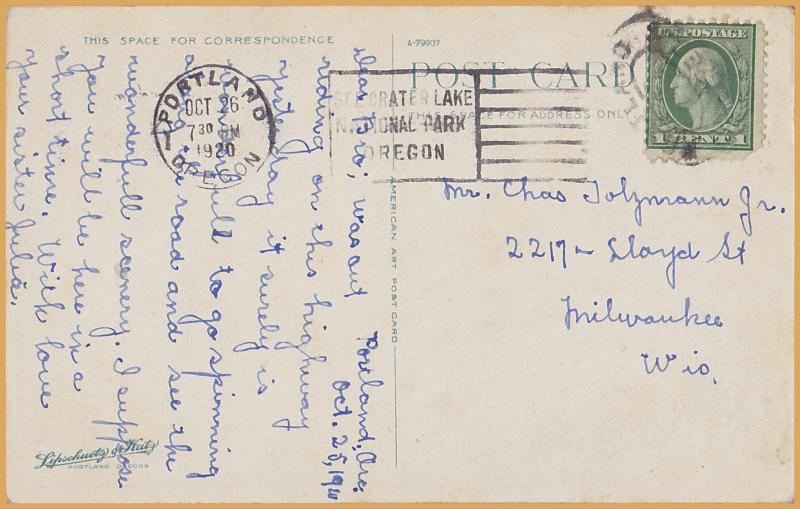 THIS SPACE FOR CORRESPONDENCE
A-79907
POST CARD
THIS SPACE FOR ADDRESS ONLY
U.S. POSTAGE
1 CENT 1
PORTLAND
OCT 26
7 30 PM
1920
OREGON
SEE CRATER LAKE
NATIONAL PARK
OREGON
Mr. Chas Tolzmann Jr.
2217 - Lloyd St
Milwaukee
Wis.
Portland, Ore.
Oct. 25, 1920
Dear Bro; was out
riding on this highway
yesterday it surely is
to go spinning
road and see the
wonderfull scenery. I suppose
you will be here in a
short time. With love
your sister Julia.
AMERICAN ART POST CARD
Lipschuetz & Katz
PORTLAND, OREGON